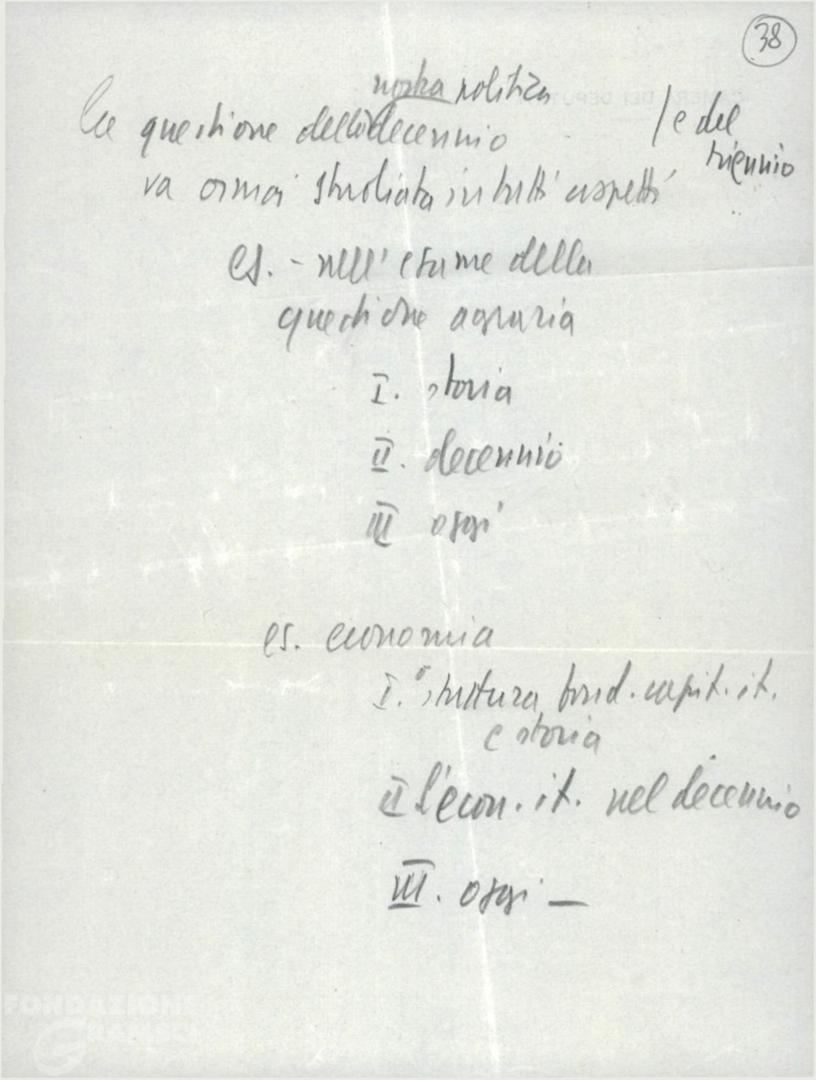 38
nostra politica
la questione della decennio / e del
triennio
va ormai studiata in tutti aspetti
es. - nell'esame della
questione agraria
I. storia
II. decennio
III oggi
es. economia
I.° struttura fond. capit. it.
e storia
II l'econ. it. nel decennio
III. oggi —
CAMERA DEI DEPUTATI
FONDAZIONE
GRAMSCI